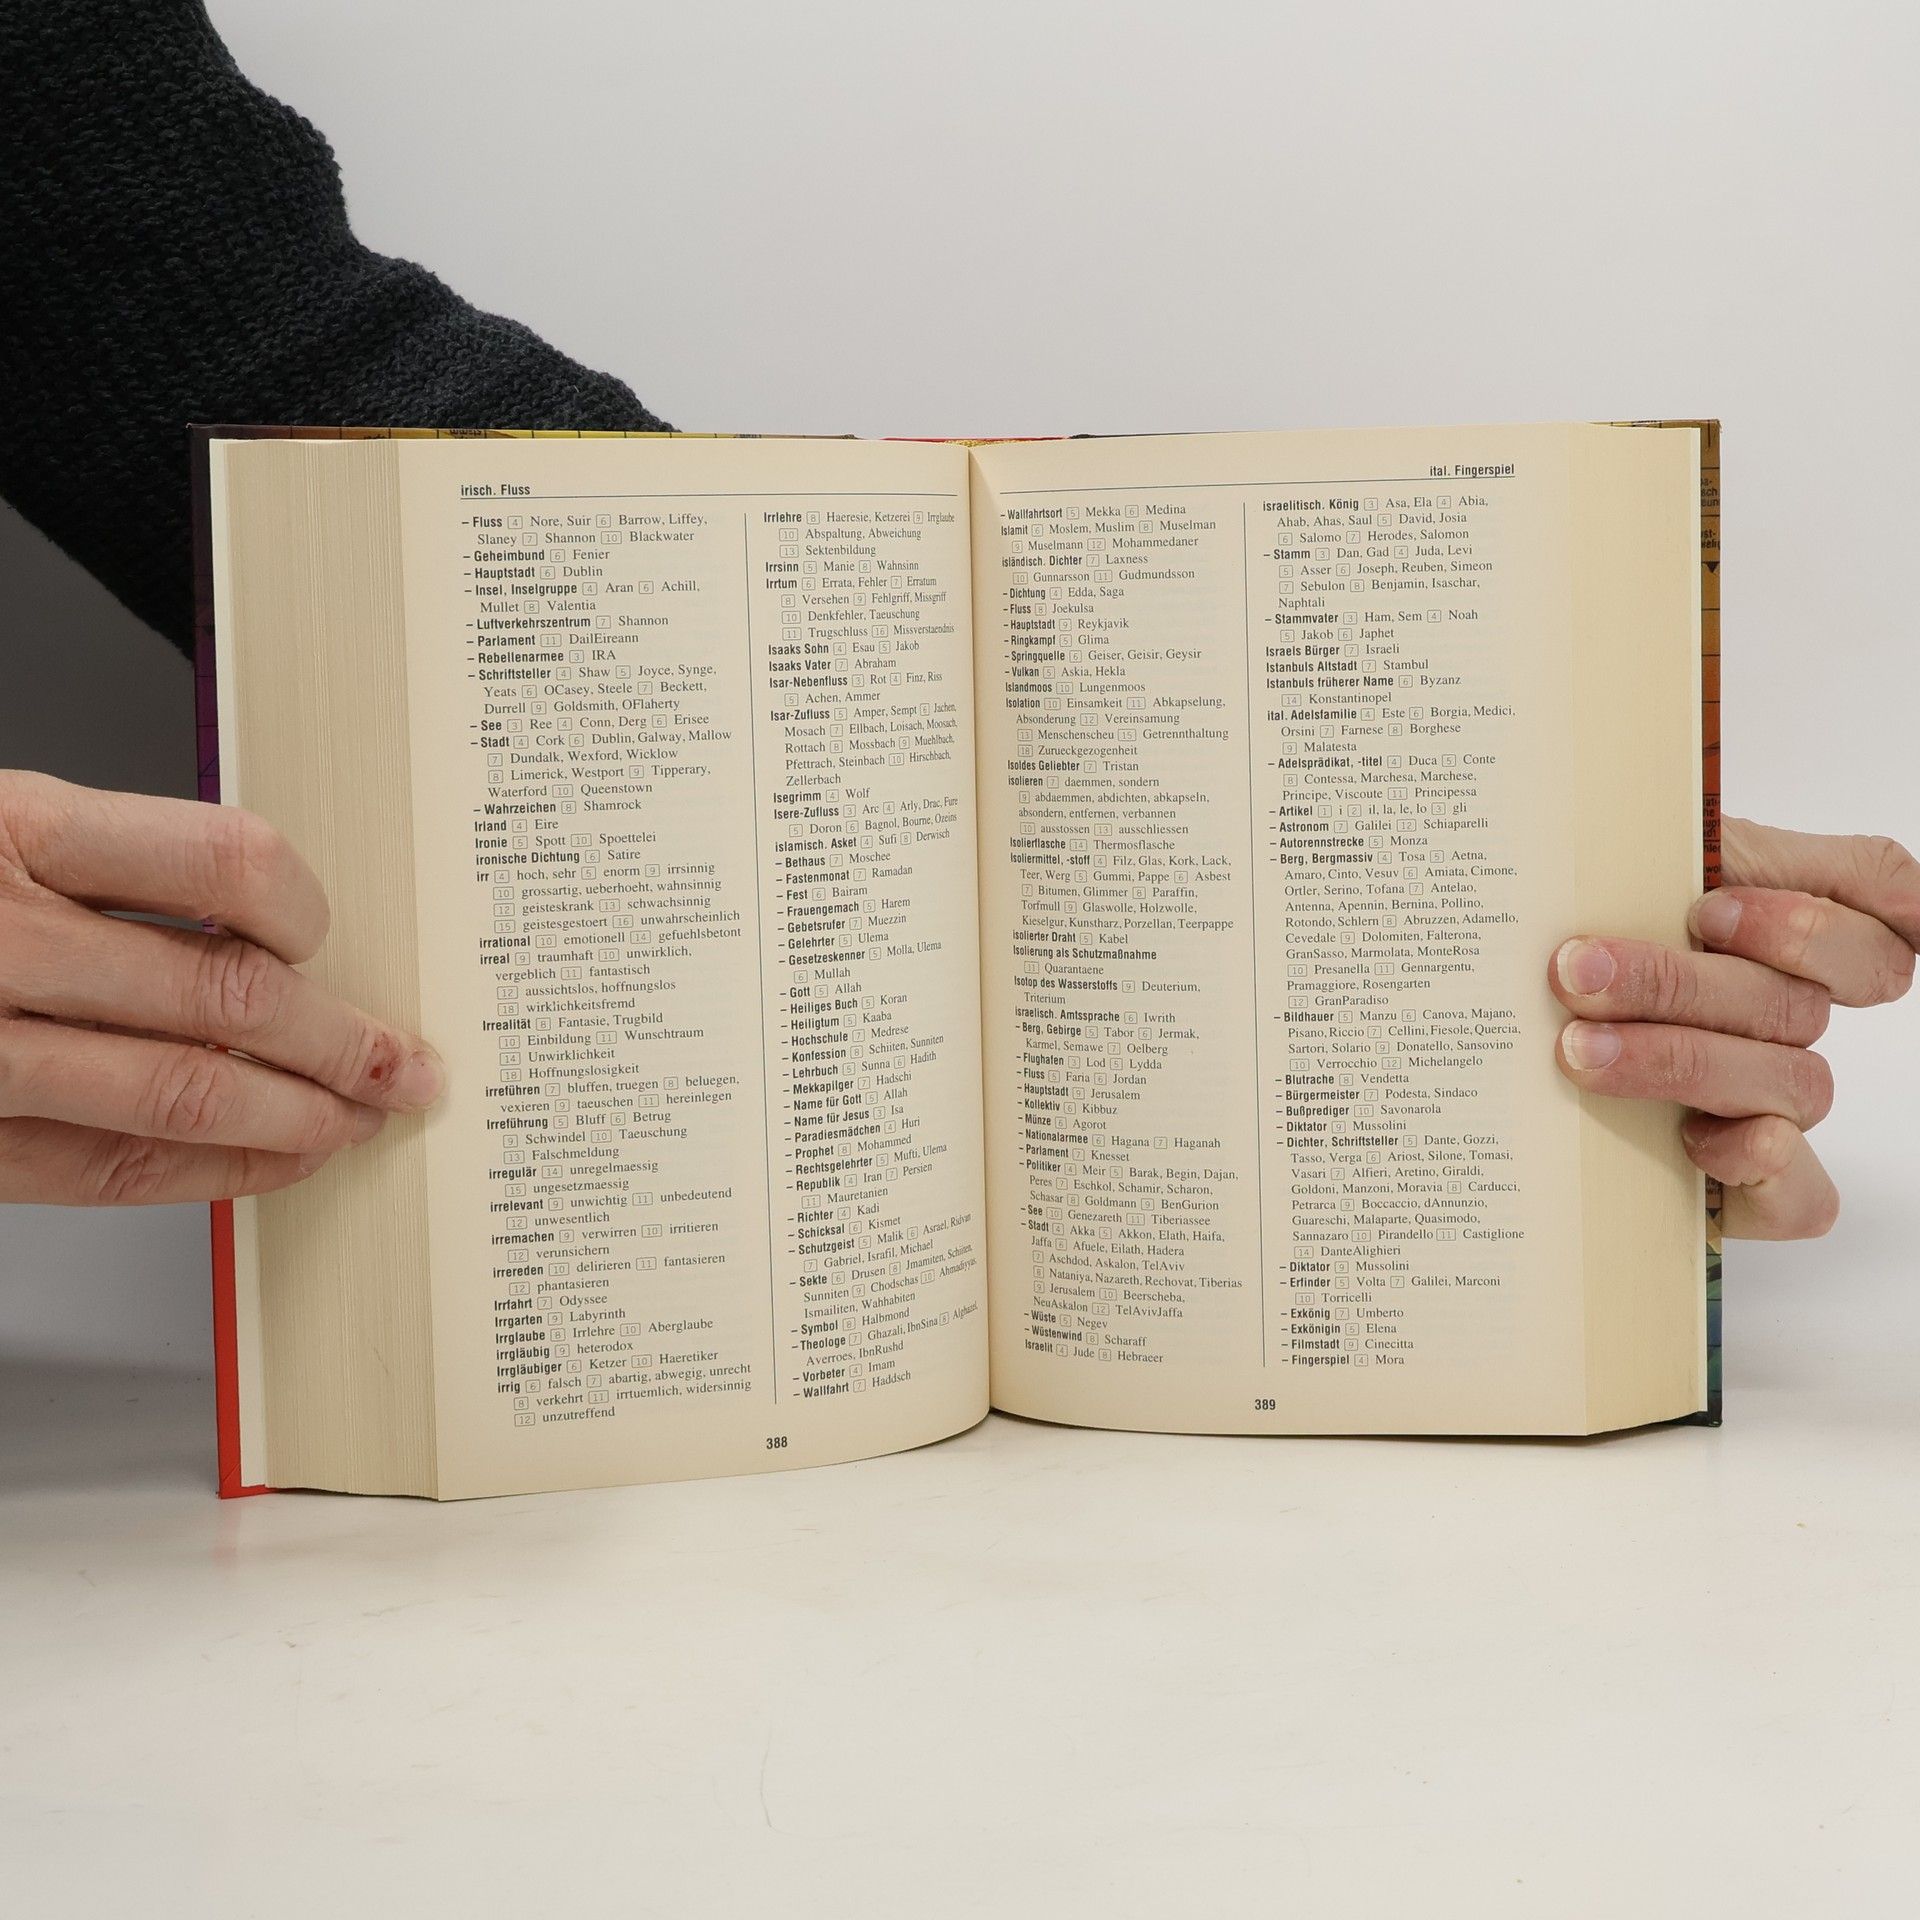 irisch. Fluss
– Fluss 4 Nore, Suir 6 Barrow, Liffey,
Slaney 7 Shannon 10 Blackwater
– Geheimbund 6 Fenier
– Hauptstadt 6 Dublin
– Insel, Inselgruppe 4 Aran 6 Achill,
Mullet 8 Valentia
– Luftverkehrszentrum 7 Shannon
– Parlament 11 DailEireann
– Rebellenarmee 3 IRA
– Schriftsteller 4 Shaw 5 Joyce, Synge,
Yeats 6 OCasey, Steele 7 Beckett,
Durrell 9 Goldsmith, OFlaherty
– See 3 Ree 4 Conn, Derg 6 Erisee
– Stadt 4 Cork 6 Dublin, Galway, Mallow
7 Dundalk, Wexford, Wicklow
8 Limerick, Westport 9 Tipperary,
Waterford 10 Queenstown
– Wahrzeichen 8 Shamrock
Irland 4 Eire
Ironie 5 Spott 10 Spoettelei
ironische Dichtung 6 Satire
irr 4 hoch, sehr 5 enorm 9 irrsinnig
10 grossartig, ueberhoeht, wahnsinnig
12 geisteskrank 13 schwachsinnig
15 geistesgestoert 16 unwahrscheinlich
irrational 10 emotionell 14 gefuehlsbetont
irreal 9 traumhaft 10 unwirklich,
vergeblich 11 fantastisch
12 aussichtslos, hoffnungslos
18 wirklichkeitsfremd
Irrealität 8 Fantasie, Trugbild
10 Einbildung 11 Wunschtraum
14 Unwirklichkeit
18 Hoffnungslosigkeit
irreführen 7 bluffen, truegen 8 beluegen,
vexieren 9 taeuschen 11 hereinlegen
Irreführung 5 Bluff 6 Betrug
9 Schwindel 10 Taeuschung
13 Falschmeldung
irregulär 14 unregelmaessig
15 ungesetzmaessig
irrelevant 9 unwichtig 11 unbedeutend
12 unwesentlich
irremachen 9 verwirren 10 irritieren
12 verunsichern
irrereden 10 delirieren 11 fantasieren
12 phantasieren
Irrfahrt 7 Odyssee
Irrgarten 9 Labyrinth
Irrglaube 8 Irrlehre 10 Aberglaube
irrgläubig 9 heterodox
Irrgläubiger 6 Ketzer 10 Haeretiker
irrig 6 falsch 7 abartig, abwegig, unrecht
8 verkehrt 11 irrtuemlich, widersinnig
12 unzutreffend
Irrlehre 8 Haeresie, Ketzerei 9 Irrglaube
10 Abspaltung, Abweichung
13 Sektenbildung
Irrsinn 5 Manie 8 Wahnsinn
Irrtum 6 Errata, Fehler 7 Erratum
8 Versehen 9 Fehlgriff, Missgriff
10 Denkfehler, Taeuschung
11 Trugschluss 16 Missverstaendnis
Isaaks Sohn 4 Esau 5 Jakob
Isaaks Vater 7 Abraham
Isar-Nebenfluss 3 Rot 4 Finz, Riss
5 Achen, Ammer
Isar-Zufluss 5 Amper, Sempt 6 Jachen,
Mosach 7 Ellbach, Loisach, Moosach,
Rottach 8 Mossbach 9 Muehlbach,
Pfettrach, Steinbach 10 Hirschbach,
Zellerbach
Isegrimm 4 Wolf
Isere-Zufluss 3 Arc 4 Arly, Drac, Fure
5 Doron 6 Bagnol, Bourne, Ozeins
islamisch. Asket 4 Sufi 8 Derwisch
– Bethaus 7 Moschee
– Fastenmonat 7 Ramadan
– Fest 6 Bairam
– Frauengemach 5 Harem
– Gebetsrufer 7 Muezzin
– Gelehrter 5 Ulema
– Gesetzeskenner 5 Molla, Ulema
6 Mullah
– Gott 5 Allah
– Heiliges Buch 5 Koran
– Heiligtum 5 Kaaba
– Hochschule 7 Medrese
– Konfession 8 Schiiten, Sunniten
– Lehrbuch 5 Sunna 6 Hadith
– Mekkapilger 7 Hadschi
– Name für Gott 5 Allah
– Name für Jesus 3 Isa
– Paradiesmädchen 4 Huri
– Prophet 8 Mohammed
– Rechtsgelehrter 5 Mufti, Ulema
– Republik 4 Iran 7 Persien
11 Mauretanien
– Richter 4 Kadi
– Schicksal 6 Kismet
– Schutzgeist 5 Malik 6 Asrael, Ridvan
7 Gabriel, Israfil, Michael
– Sekte 6 Drusen 8 Jmamiten, Schiiten,
Sunniten 9 Chodschas 10 Ahmadiyyas,
Ismailiten, Wahhabiten
– Symbol 8 Halbmond
– Theologe 7 Ghazali, IbnSina 8 Alghazel,
Averroes, IbnRushd
– Vorbeter 4 Imam
– Wallfahrt 7 Haddsch
388
ital. Fingerspiel
– Wallfahrtsort 5 Mekka 6 Medina
Islamit 6 Moslem, Muslim 8 Muselman
9 Muselmann 12 Mohammedaner
isländisch. Dichter 7 Laxness
10 Gunnarsson 11 Gudmundsson
– Dichtung 4 Edda, Saga
– Fluss 8 Joekulsa
– Hauptstadt 9 Reykjavik
– Ringkampf 5 Glima
– Springquelle 6 Geiser, Geisir, Geysir
– Vulkan 5 Askia, Hekla
Islandmoos 10 Lungenmoos
Isolation 10 Einsamkeit 11 Abkapselung,
Absonderung 12 Vereinsamung
13 Menschenscheu 15 Getrennthaltung
18 Zurueckgezogenheit
Isoldes Geliebter 7 Tristan
isolieren 7 daemmen, sondern
9 abdaemmen, abdichten, abkapseln,
absondern, entfernen, verbannen
10 ausstossen 13 ausschliessen
Isolierflasche 14 Thermosflasche
Isoliermittel, -stoff 4 Filz, Glas, Kork, Lack,
Teer, Werg 5 Gummi, Pappe 6 Asbest
7 Bitumen, Glimmer 8 Paraffin,
Torfmull 9 Glaswolle, Holzwolle,
Kieselgur, Kunstharz, Porzellan, Teerpappe
isolierter Draht 5 Kabel
Isolierung als Schutzmaßnahme
11 Quarantaene
Isotop des Wasserstoffs 9 Deuterium,
Triterium
israelisch. Amtssprache 6 Iwrith
– Berg, Gebirge 5 Tabor 6 Jermak,
Karmel, Semawe 7 Oelberg
– Flughafen 3 Lod 5 Lydda
– Fluss 5 Faria 6 Jordan
– Hauptstadt 9 Jerusalem
– Kollektiv 6 Kibbuz
– Münze 6 Agorot
– Nationalarmee 6 Hagana 7 Haganah
– Parlament 7 Knesset
– Politiker 4 Meir 5 Barak, Begin, Dajan,
Peres 7 Eschkol, Schamir, Scharon,
Schasar 8 Goldmann 9 BenGurion
– See 10 Genezareth 11 Tiberiassee
– Stadt 4 Akka 5 Akkon, Elath, Haifa,
Jaffa 6 Afuele, Eilath, Hadera
7 Aschdod, Askalon, TelAviv
8 Nataniya, Nazareth, Rechovat, Tiberias
9 Jerusalem 10 Beerscheba,
NeuAskalon 12 TelAvivJaffa
– Wüste 5 Negev
– Wüstenwind 8 Scharaff
Israelit 4 Jude 8 Hebraeer
israelitisch. König 3 Asa, Ela 4 Abia,
Ahab, Ahas, Saul 5 David, Josia
6 Salomo 7 Herodes, Salomon
– Stamm 3 Dan, Gad 4 Juda, Levi
5 Asser 6 Joseph, Reuben, Simeon
7 Sebulon 8 Benjamin, Isaschar,
Naphtali
– Stammvater 3 Ham, Sem 4 Noah
5 Jakob 6 Japhet
Israels Bürger 7 Israeli
Istanbuls Altstadt 7 Stambul
Istanbuls früherer Name 6 Byzanz
14 Konstantinopel
ital. Adelsfamilie 4 Este 6 Borgia, Medici,
Orsini 7 Farnese 8 Borghese
9 Malatesta
– Adelsprädikat, -titel 4 Duca 5 Conte
8 Contessa, Marchesa, Marchese,
Principe, Viscoute 11 Principessa
– Artikel 1 i 2 il, la, le, lo 3 gli
– Astronom 7 Galilei 12 Schiaparelli
– Autorennstrecke 5 Monza
– Berg, Bergmassiv 4 Tosa 5 Aetna,
Amaro, Cinto, Vesuv 6 Amiata, Cimone,
Ortler, Serino, Tofana 7 Antelao,
Antenna, Apennin, Bernina, Pollino,
Rotondo, Schlern 8 Abruzzen, Adamello,
Cevedale 9 Dolomiten, Falterona,
GranSasso, Marmolata, MonteRosa
10 Presanella 11 Gennargentu,
Pramaggiore, Rosengarten
12 GranParadiso
– Bildhauer 5 Manzu 6 Canova, Majano,
Pisano, Riccio 7 Cellini, Fiesole, Quercia,
Sartori, Solario 9 Donatello, Sansovino
10 Verrocchio 12 Michelangelo
– Blutrache 8 Vendetta
– Bürgermeister 7 Podesta, Sindaco
– Bußprediger 10 Savonarola
– Diktator 9 Mussolini
– Dichter, Schriftsteller 5 Dante, Gozzi,
Tasso, Verga 6 Ariost, Silone, Tomasi,
Vasari 7 Alfieri, Aretino, Giraldi,
Goldoni, Manzoni, Moravia 8 Carducci,
Petrarca 9 Boccaccio, dAnnunzio,
Guareschi, Malaparte, Quasimodo,
Sannazaro 10 Pirandello 11 Castiglione
14 DanteAlighieri
– Diktator 9 Mussolini
– Erfinder 5 Volta 7 Galilei, Marconi
10 Torricelli
– Exkönig 7 Umberto
– Exkönigin 5 Elena
– Filmstadt 9 Cinecitta
– Fingerspiel 4 Mora
389